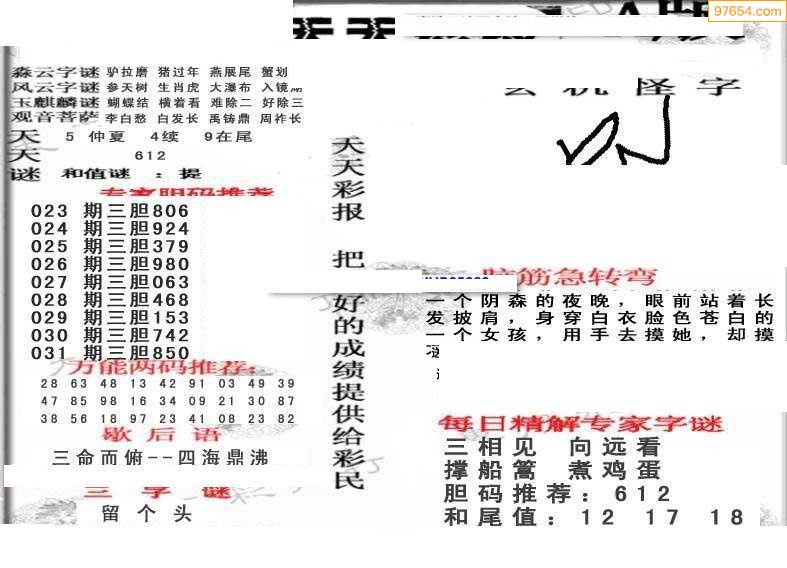 97654.com
森云字谜 驴拉磨 猪过年 燕展尾 蟹划
风云字谜 参天树 生肖虎 大瀑布 入镜
玉麒麟谜 蝴蝶结 横着看 难除二 好除三
观音菩萨 李白愁 白发长 禹铸鼎 周祚长
天 5 仲夏 4续 9在尾
天 612
谜 和值谜 : 提
专家胆码推荐
023 期三胆806
024 期三胆924
025 期三胆379
026 期三胆980
027 期三胆063
028 期三胆468
029 期三胆153
030 期三胆742
031 期三胆850
万能两码推荐:
28 63 48 13 42 91 03 49 39
47 85 98 16 34 09 21 30 87
38 56 18 97 23 41 08 23 82
歇后语
三命而俯--四海鼎沸
三字谜
留个头
天天彩报 把好的成绩提供给彩民
玄机怪字
脑筋急转弯
一个阴森的夜晚，眼前站着长
发披肩，身穿白衣脸色苍白的
一个女孩，用手去摸她，却摸
每日精解专家字谜
三相见 向远看
撑船篙 煮鸡蛋
胆码推荐：612
和尾值：12 17 18